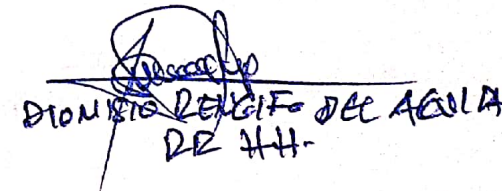 DIONISIO RENGIFO DEL AGUILA
RR HH.